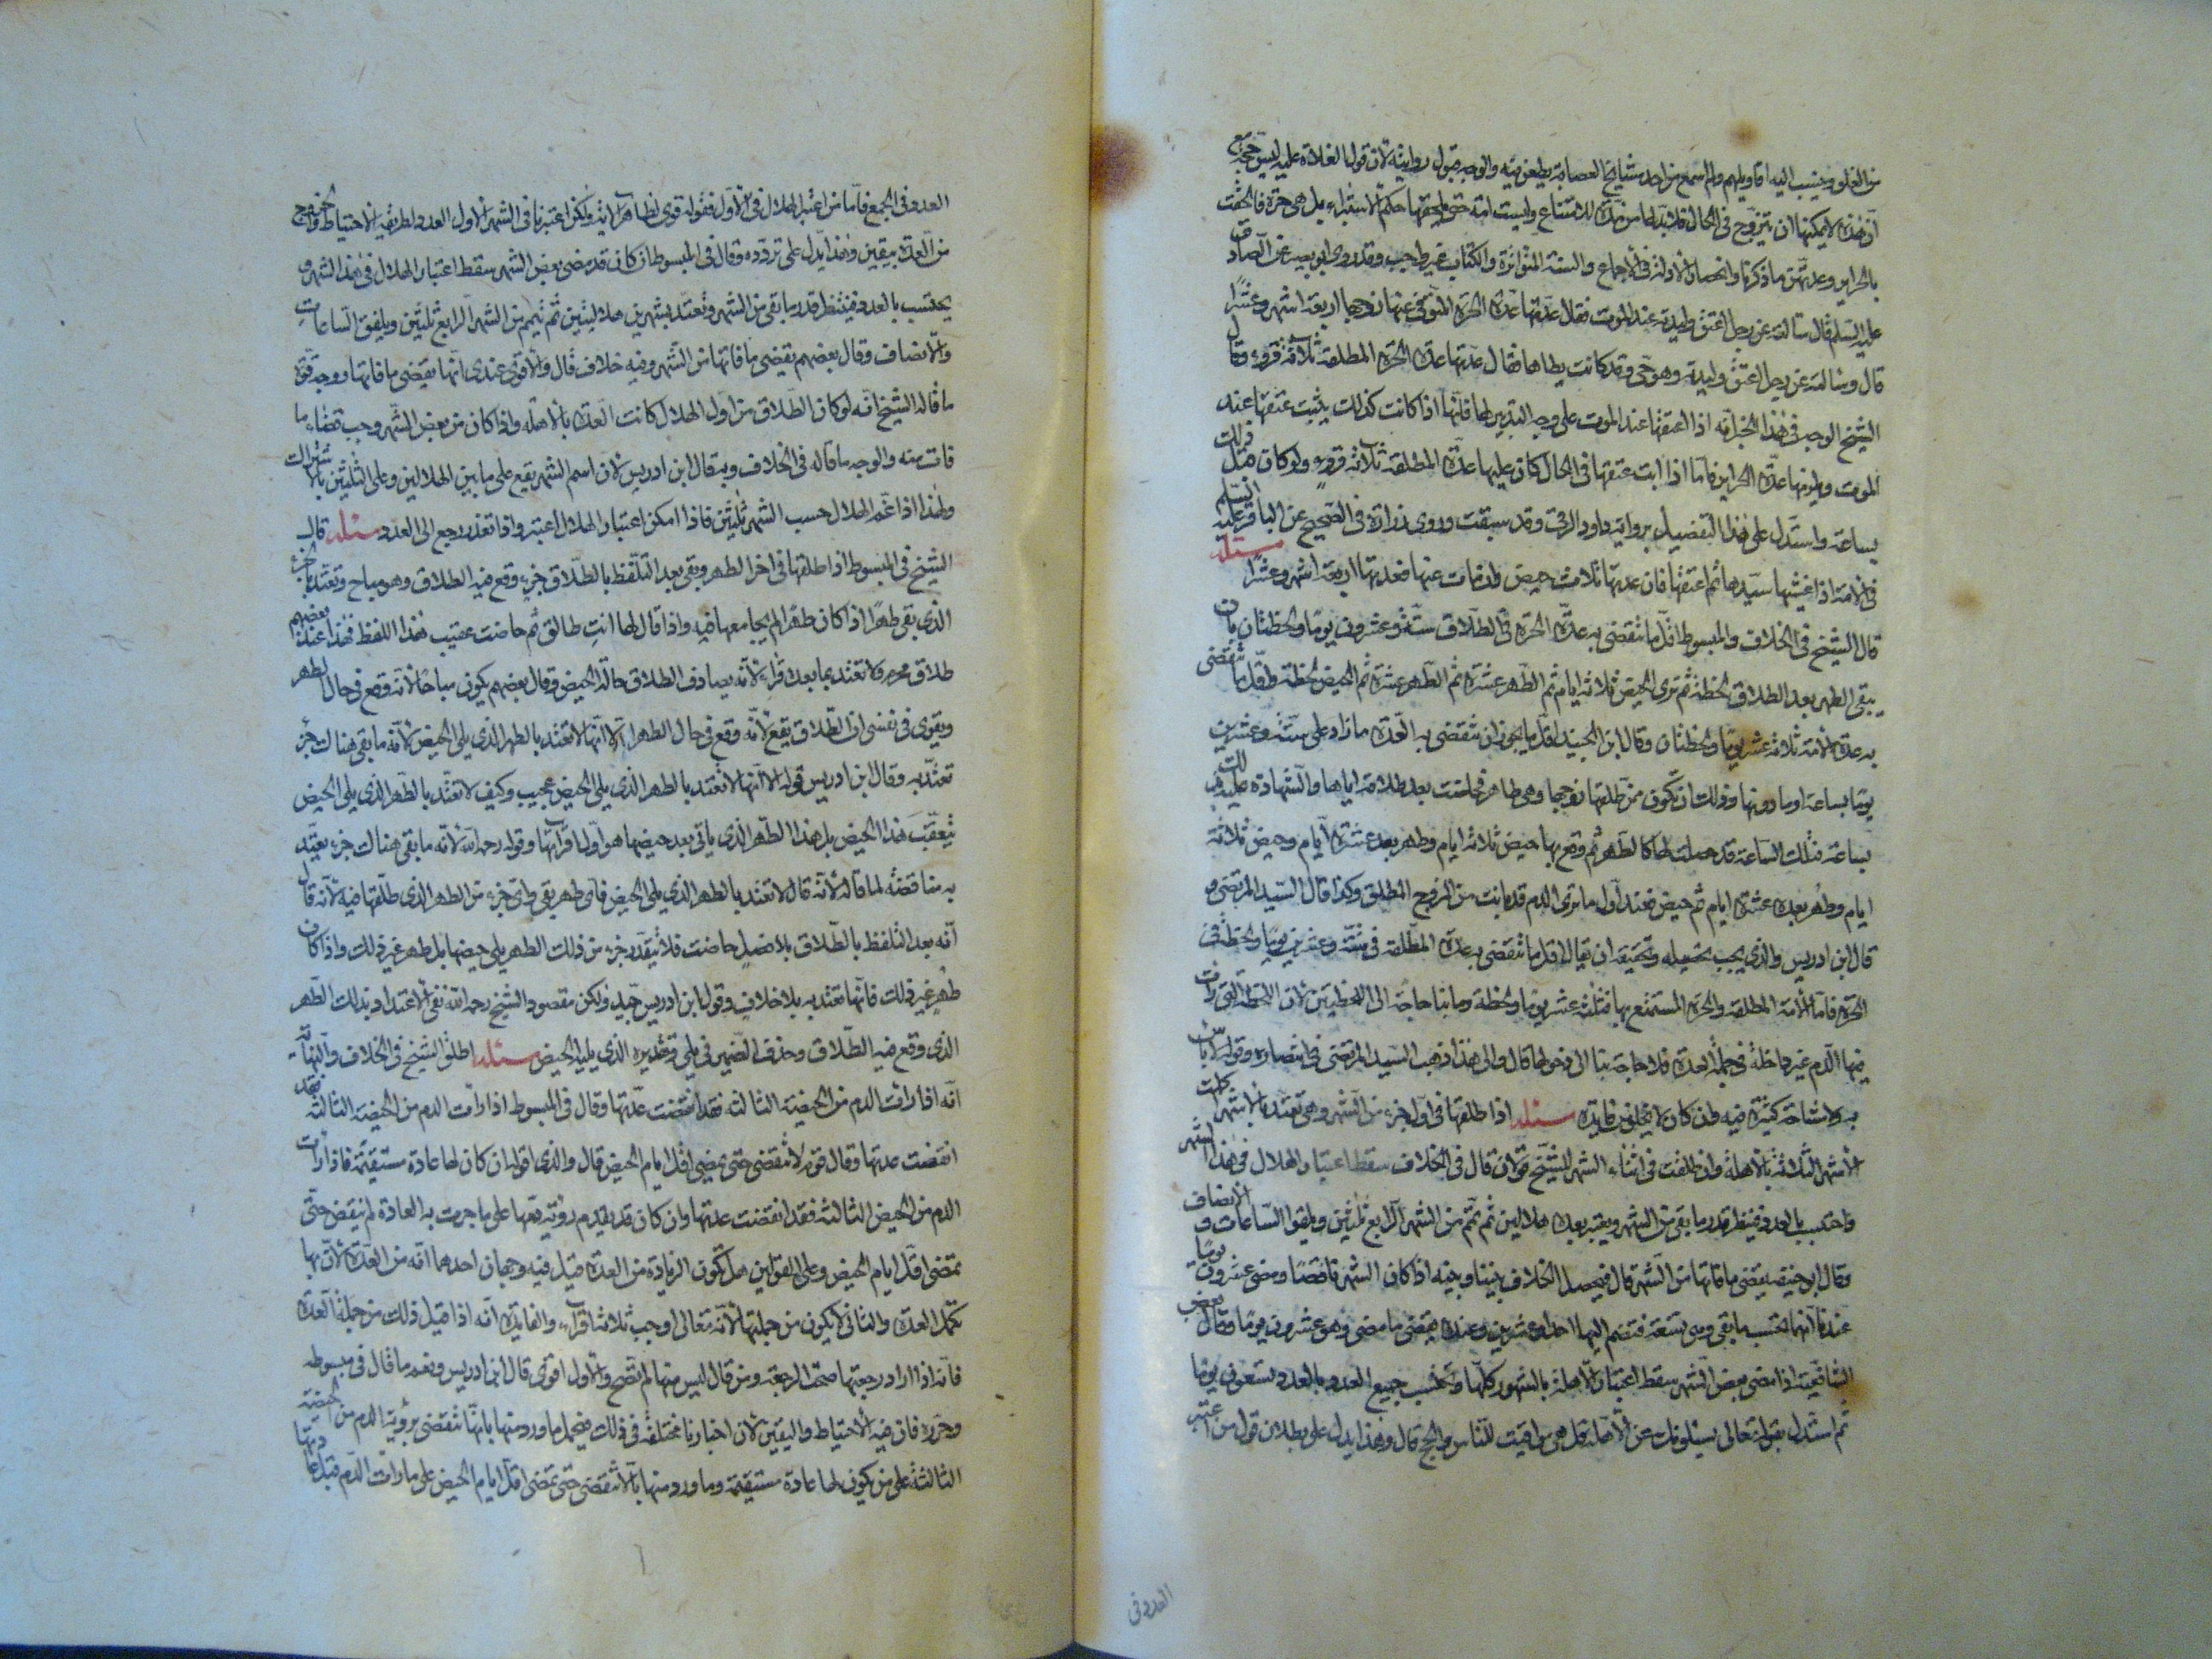 من الغلو وينسب اليه اقاويلهم ولم اسمع من احد مشايخ العصابة يطعن فيه والوجه قبول روايته لان قول الغلاة عليه ليس حجة مع
ان هذه لا يمكنها ان تتزوج فى الحال فلا بد لها من عدة للامتناع وليست امة حتى يلحقها حكم الاستبراء بل هى حرة فالحقت
بالحراير وعدتهن ما ذكرنا وانحصار الادلة فى الاجماع والسنة المتواترة والكتاب غير واجب وقد روى ابو بصير عن الصادق
عليه السلم قال سالته عن رجل اعتق وليدته عند الموت فقال عدتها عدة الحرة المتوفى عنها زوجها اربعة اشهر وعشرا
قال وسالته عن رجل اعتق وليدته وهو حى وقد كانت يطاها فقال عدتها عدة الحرة المطلقة ثلاثة قروء وقال
الشيخ الوجه فى هذا الخبر انه اذا اعتقها عند الموت على وجه التدبير لها فانها اذا كانت كذلك يثبت عتقها عند
الموت ويلزمها عدة الحراير فاما اذا ابت عتقها فى الحال كان عليها عدة المطلقة ثلاثة قروء ولو كان قبل ذلك
بساعة واستدل على هذا التفصيل برواية داود الرقى وقد سبقت وروى زرارة فى الصحيح عن الباقر عليه السلم
فى الامة اذا غشيها سيدها ثم اعتقها فان عدتها ثلاث حيض فان مات عنها فعدتها اربعة اشهر وعشرا مسئلة
قال الشيخ فى الخلاف والمبسوط اقل ما تنقضى به عدة الحرة فى الطلاق ستة وعشرون يوما ولحظتان بان
يبقى الطهر بعد الطلاق لحظة ثم ترى الحيض ثلاثة ايام ثم الطهر عشرة ثم الطهر عشرة ثم الحيض لحظة واقل ما تنقضى
به عدة الامة ثلاثة عشر يوما ولحظتان وقال ابن الجنيد اقل ما يجوز ان تنقضى به العدة ما زاد على ستة وعشرين
يوما بساعة او ما دونها وذلك ان تكون من طلقها زوجها وهى طاهر فحاضت بعد طلاقه اياها والشهادة عليه بذلك
بساعة فتلك الساعة قد حصلت لها كالطهر ثم وقع بها حيض ثلاثة ايام وطهر بعد عشرة ايام وحيض ثلاثة
ايام وطهر بعده عشرة ايام ثم حيض فعند اول ما ترى الدم قد بانت من الزوج المطلق وكذا قال السيد المرتضى و
قال ابن ادريس والذى يجب تحصيله وتحقيقه ان يقال اقل ما تنقضى به عدة المطلقة فى ستة وعشرين يوما ولحظة فى
الحرة فاما الامة المطلقة والحرة المستمتع بها فثلثة عشر يوما ولحظة وما بنا حاجة الى اللحظتين لان اللحظة التى رات
فيها الدم غير داخلة فى جملة العدة فلا حاجة بنا الى دخولها قال والى هذا ذهب السيد المرتضى فى انتصاره وقوله لا باس
به ولا مشاحة كثيرة فيه وان كان لا يخلو من فايدة مسئلة اذا طلقها فى اول جزء من الشهر وهى تعتد بالاشهر كملت
الاشهر الثلاثة بالاهلة وان طلقت فى اثناء الشهر للشيخ قولان قال فى الخلاف سقط اعتبار الهلال فى هذا الشهر
واحتسب بالعدد فينظر قدر ما بقى من الشهر ويعتبر بعده هلالين ثم تتم من الشهر الرابع ثلثين ويلفق الساعات والانصاف
وقال ابو حنيفة يقضى ما فاتها من الشهر قال فيحصل الخلاف بيننا وبينه اذا كان الشهر ناقصا ومضى عشرون يوما
عندنا انها تحتسب ما بقى وهى تسعة فتضم اليها احدا وعشرين وعنده يقضى ما مضى وهو عشرون يوما وقال بعض
الشافعية اذا مضى بعض الشهر سقط اعتبار الاهلة بالشهور كلها وتحتسب جميع العدد بالعدد تسعون يوما
ثم استدل بقوله تعالى يسئلونك عن الاهلة قل هى مواقيت للناس والحج قال وهذا يدل على بطلان قول من اعتبر
العدد فى
العدد فى الجميع فاما من اعتبر الهلال فى الاول فقوله قوى لظاهر الاية ولكن اعتبرنا فى الشهر الاول العدد لطريقة الاحتياط والخروج
من العدة بيقين وهذا يدل على تردده وقال فى المبسوط ان كان قد مضى بعض الشهر سقط اعتبار الهلال فى هذا الشهر و
يحتسب بالعدد فينتظر قدر ما بقى من الشهر وتعتد بشهرين هلاليين ثم تتمم من الشهر الرابع ثلثين ويلفق الساعات
والانصاف وقال بعضهم تقضى ما فاتها من الشهر وفيه خلاف قال والاقوى عندى انها تقضى ما فاتها ووجه قوة
ما قاله الشيخ انه لو كان الطلاق من اول الهلال كانت العدة بالاهلة واذا كان من بعض الشهر وجب قضاء ما
فات منه والوجه ما قاله فى الخلاف وبه قال ابن ادريس لان اسم الشهر يقع على ما بين الهلالين وعلى الثلثين بالاشتراك
ولهذا اذا غم الهلال حسب الشهر ثلثين فاذا امكن اعتبار الهلال اعتبر واذا تعذر رجع الى العدد مسئلة قال
الشيخ فى المبسوط اذا طلقها فى اخر الطهر وبقى بعد التلفظ بالطلاق جزء وقع فيه الطلاق وهو مباح وتعتد بالجزء
الذى بقى طهرا اذا كان طهرا لم يجامعها فيه واذا قال لها انت طالق ثم حاضت عقيب هذا اللفظ فهذا عند بعضهم
طلاق محرم ولا تعتد بما بعده قراء لانه يصادف الطلاق حالة الحيض وقال بعضهم يكون مباحا لانه وقع فى حال الطهر
ويقوى فى نفسى ان الطلاق يقع لانه وقع فى حال الطهر الا انها لا تعتد بالطهر الذى يلى الحيض لانه ما بقى هناك جزء
تعتد به وقال ابن ادريس قوله الا انها لا تعتد بالطهر الذى يلى الحيض عجيب وكيف لا تعتد بالطهر الذى يلى الحيض
يتعقب هذا الحيض بل هذا الطهر الذى ياتى بعد حيضها هو اول اقرائها وقوله رحمه الله لانه ما بقى هناك جزء يعتد
به مناقضة لما قاله لانه قال لا تعتد بالطهر الذى يلى الحيض فاى طهر بقى واى جزء من الطهر الذى طلقها فيه لانه قال
انه بعد التلفظ بالطلاق بلا فصل حاضت فلا يتقدر جزء من ذلك الطهر يلى حيضها بل طهر غير ذلك واذا كان
طهر غير ذلك فانها تعتد به بلا خلاف وقول ابن ادريس جيد ولكن مقصود الشيخ رحمه الله نفى الاعتداد بذلك الطهر
الذى وقع فيه الطلاق وحذف الضمير فى يلى وتقديره الذى يليه الحيض مسئلة اطلق الشيخ فى الخلاف والنهاية
انه اذا رات الدم من الحيضة الثالثة فقد انقضت عدتها وقال فى المبسوط اذا رات الدم من الحيضة الثالثة فقد
انقضت عدتها وقال قوم لا تنقضى حتى يمضى اقل ايام الحيض قال والذى اقوله ان كان لها عادة مستقيمة فاذا رات
الدم من الحيض الثالثة فقد انقضت عدتها وان كان قد تقدم رؤية دمها على ما جرت به العادة لم تنقض حتى
تمضى اقل ايام الحيض وعلى القولين هل تكون الزيادة من العدة قيل فيه وجهان احدهما انه من العدة لان بها
تكمل العدة والثانى لا يكون من جملتها لانه تعالى اوجب ثلاثة اقراء والفايدة انه اذا قيل ذلك من جملة العدة
فانه اذا اراد رجعتها صحت الرجعة ومن قال ليس منها لم تصح والاول اقوى قال ابن ادريس ونعم ما قال فى مبسوطه
وحرره فان فيه الاحتياط واليقين لان اخبارنا مختلفة فى ذلك فيحمل ما ورد منها بانها تنقضى برؤية الدم من الحيضة
الثالثة على من يكون لها عادة مستقيمة وما ورد منها بانه لا تنقضى حتى تمضى اقل ايام الحيض على ما رات الدم قبل عادتها